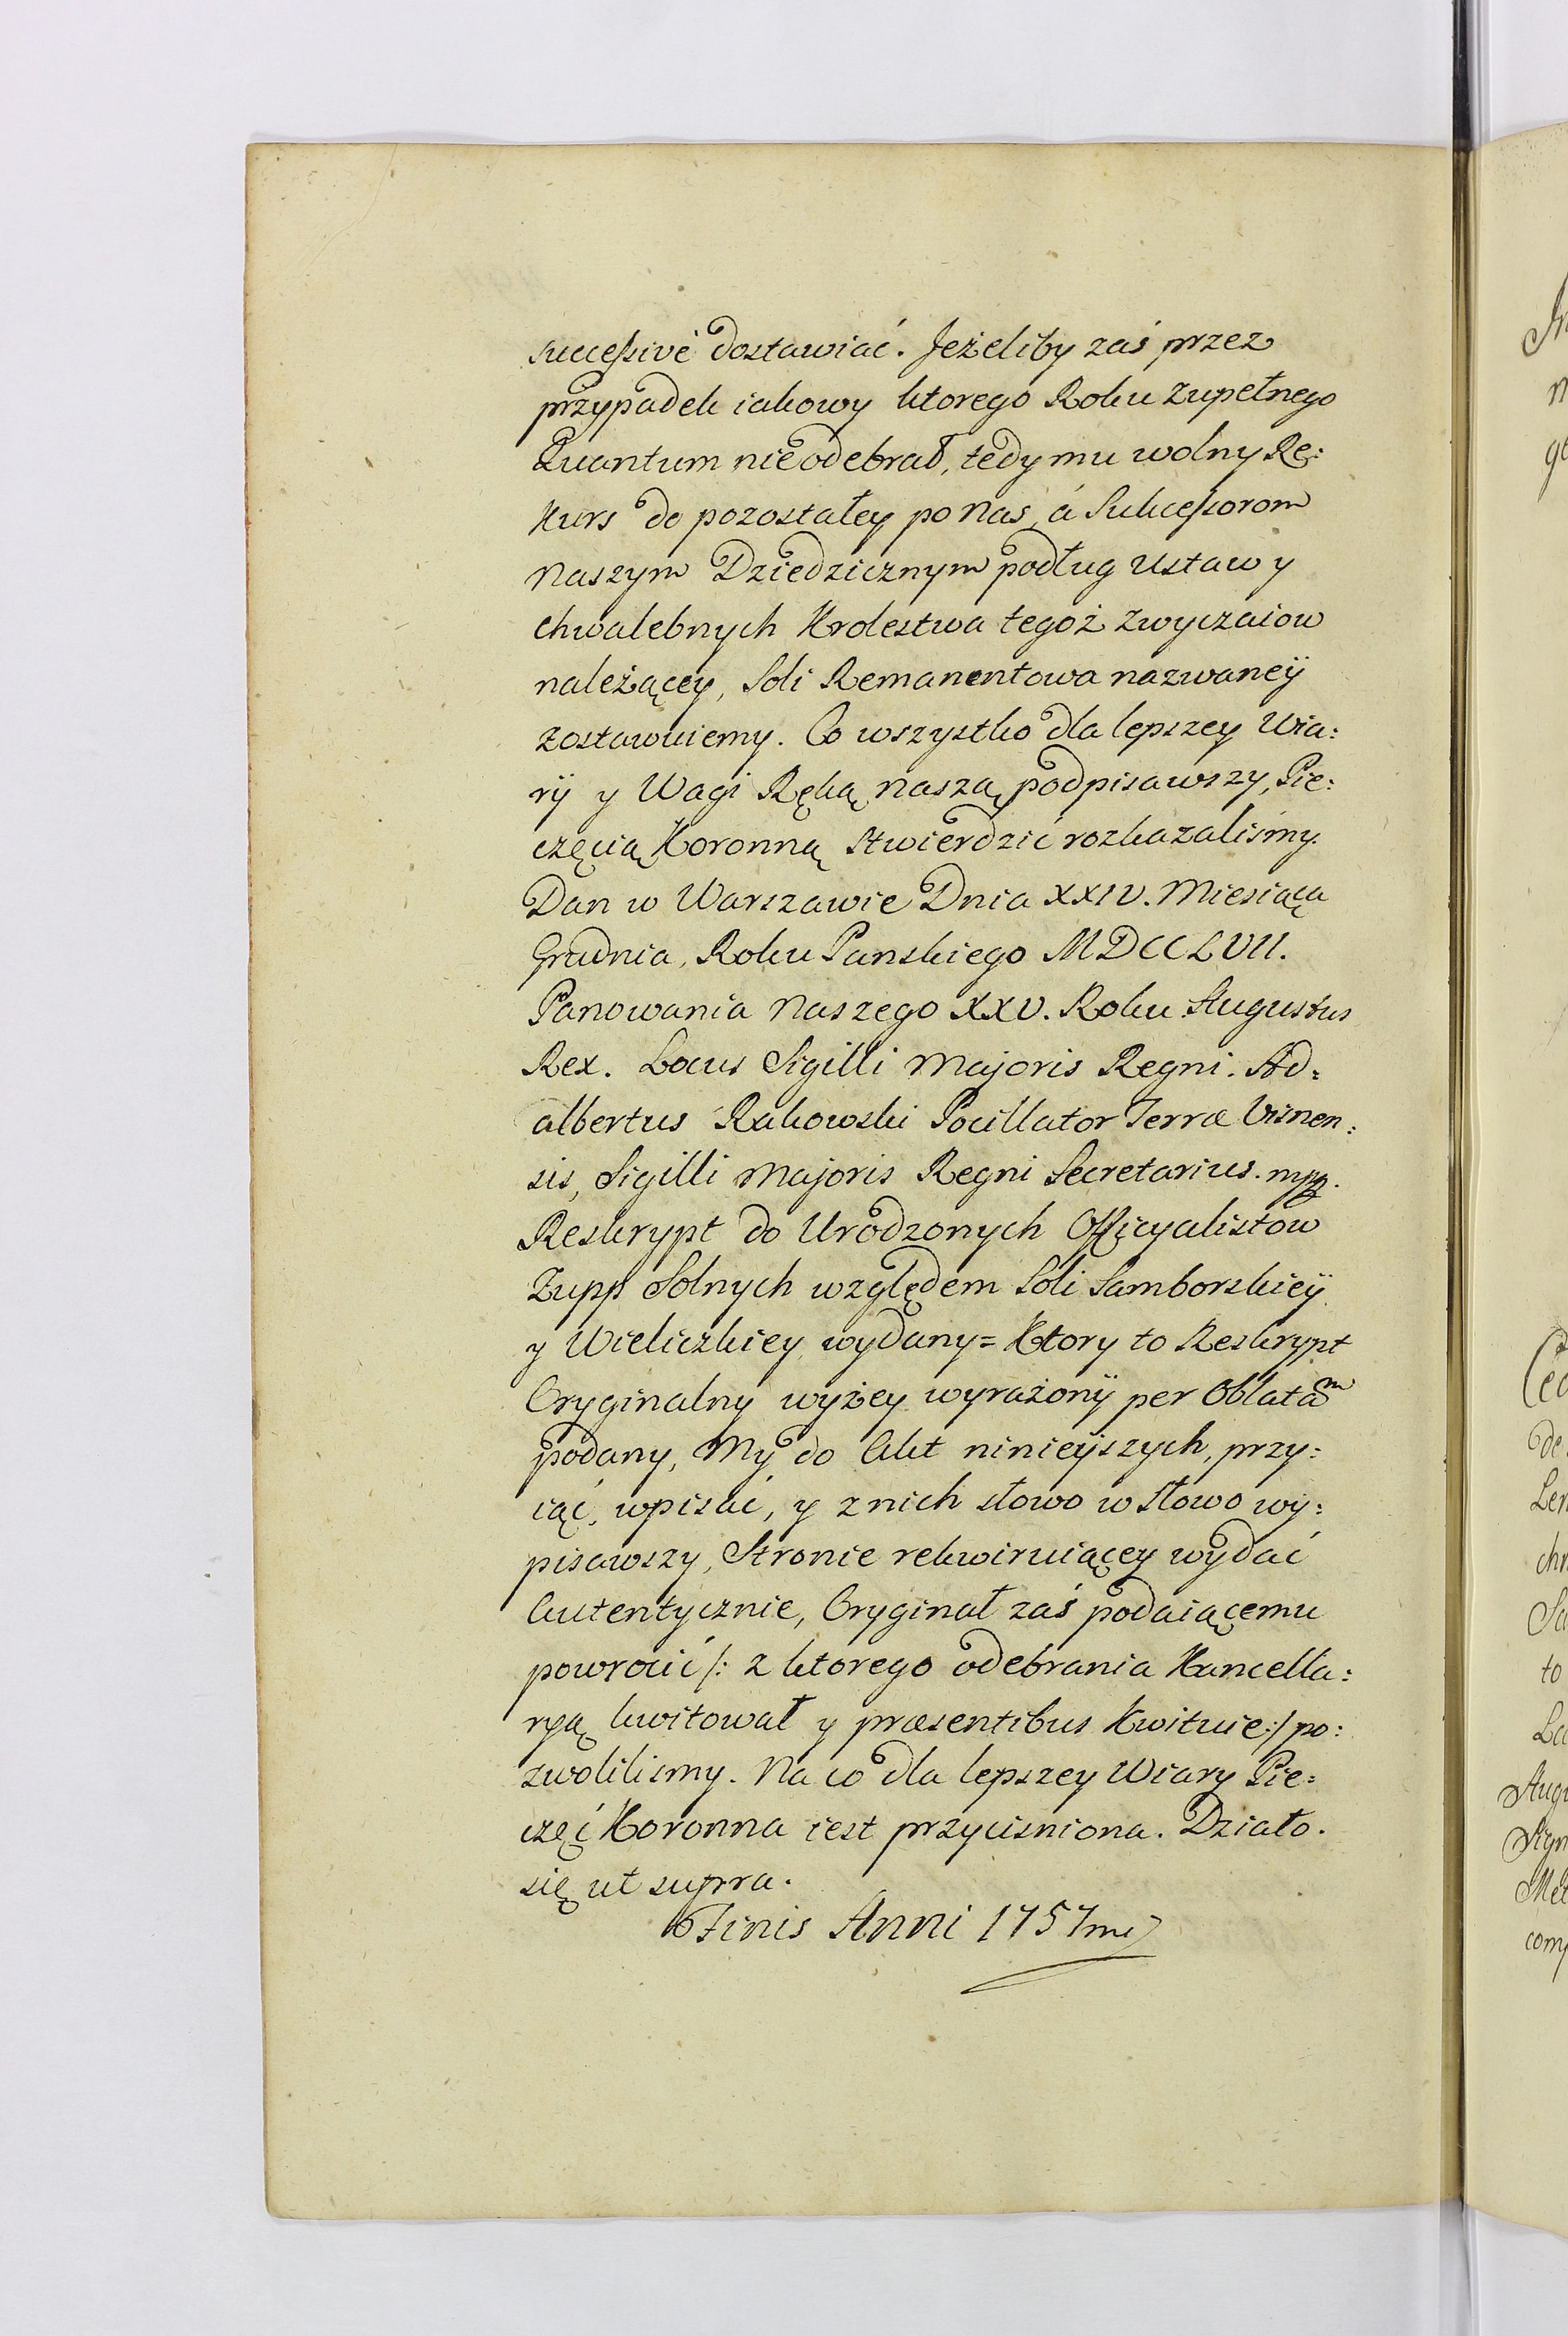 succeſsivè dostawiać. Jeżeliby zaś przez
przypadek iakowy ktorego Roku zupełnego
Quantum nie odebrał, tedy mu wolny Re:
kurs do pozostałey po Nas, á Sukceſsorom
Naszym Dziedzicznym podług Ustaw y
chwalebnych Krolestwa tegoż zwyczaiow
należącey, Soli Remanentowa nazwaneÿ
zostawuiemy. Co wszystko dla lepszey Wia:
rÿ y Wagi Ręką naszą podpisawszy, Pie:
częcią Koronną stwierdzić rozkazaliśmy.
Dan w Warszawie Dnia XXIV. Miesiąca
Grudnia, Roku Panskiego MDCCLVII.
Panowania Naszego XXV. Roku. Augustus
Rex. Locus Sigilli Majoris Regni. Ad:
albertus Rakowski Pocillator Terræ Visnen:
sis, Sigilli Majoris Regni Secretarius. mpp.
Reskrypt do Urodzonych Officyalistow
Zupp Solnych względem Soli Samborskieÿ
y Wieliczkiey wydany = Ktory to Reskrypt
Oryginalny wyżey wyrażonÿ per Oblatam
podany, My do Akt ninieÿszych, przy:
iąć, wpisać, y z nich słowo w słowo wy:
pisawszy, Stronie rekwiruiącey wydać
Autentycznie, Oryginał zaś podaiącemu
powrocić /: z ktorego odebrania Kancella:
ryą kwitował y præsentibus kwituie :/ po:
zwolilismy. Na co dla lepszey Wiary Pie:
częć Koronna iest przycisniona. Działo
się ut supra.
Finis Anni 1757mi